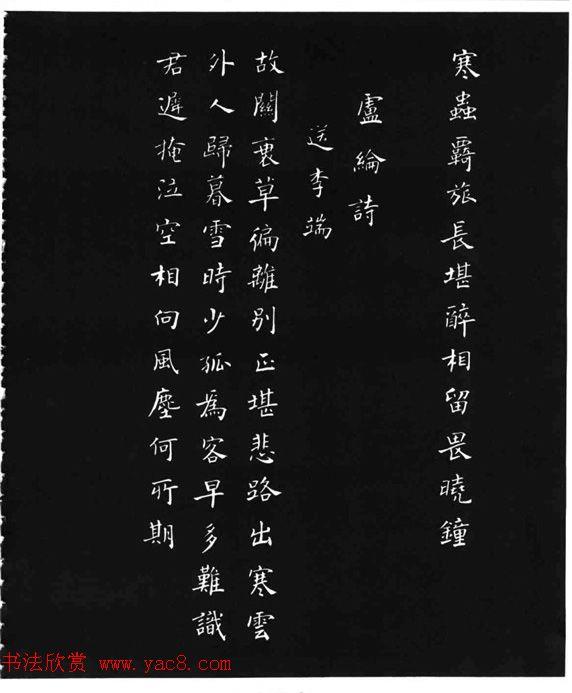 寒蟲羇旅長堪醉相留畏曉鐘
盧綸詩
送李端
故關衰草徧離別正堪悲路出寒雲
外人歸暮雪時少孤為客早多難識
君遲掩泣空相向風塵何所期
书法欣赏 www.yac8.com